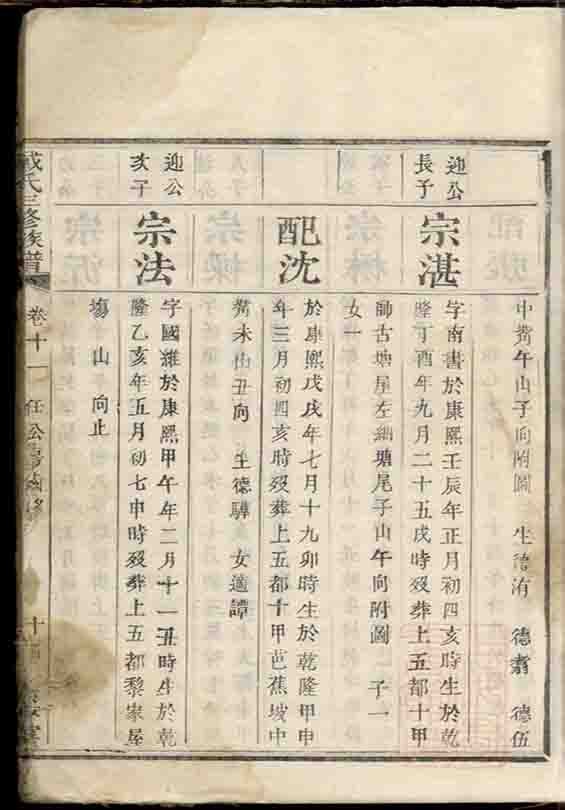 中嘴午山子向附圖 生德洧 德翥 德伍
迎公長子
宗湛
字南書於康熙壬辰年正月初四亥時生於乾
隆丁酉年九月二十五戌時歿葬上五都十甲
師古塘屋左細塘尾子山午向附圖 子一
女一
配沈
於康熙戊戌年七月十九卯時生於乾隆甲申
年三月初四亥時歿葬上五都十甲芭蕉坡中
嘴未山丑向 生德驊 女適譚
迎公次子
宗法
字國維於康熙甲午年二月十一丑時生於乾
隆乙亥年五月初七申時歿葬上五都黎家屋
塲山向止
戴氏三修族譜
卷十一